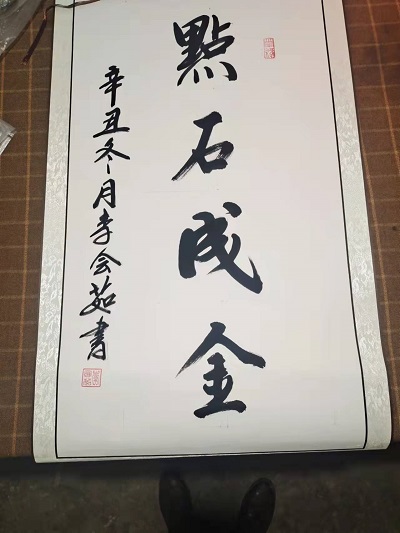 點石成金
辛丑冬月李会茹書